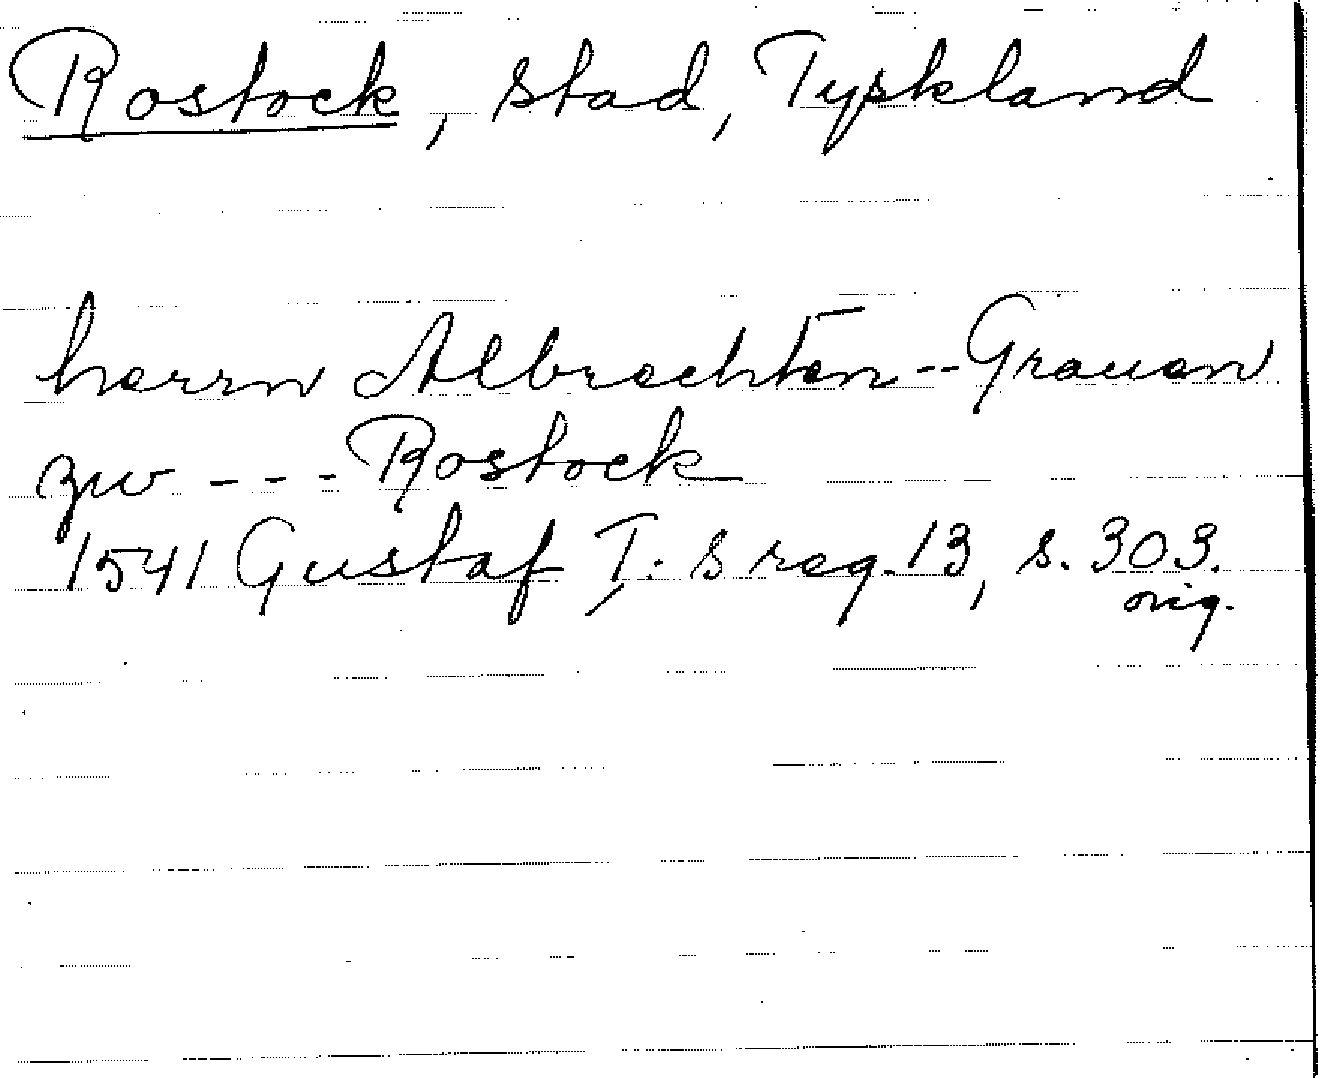 Rostock, stad, Tyskland
herrn Albrechten -- Grauen
zw --- Rostock
1541 Gustaf I:s reg. 13, s. 303.
orig.